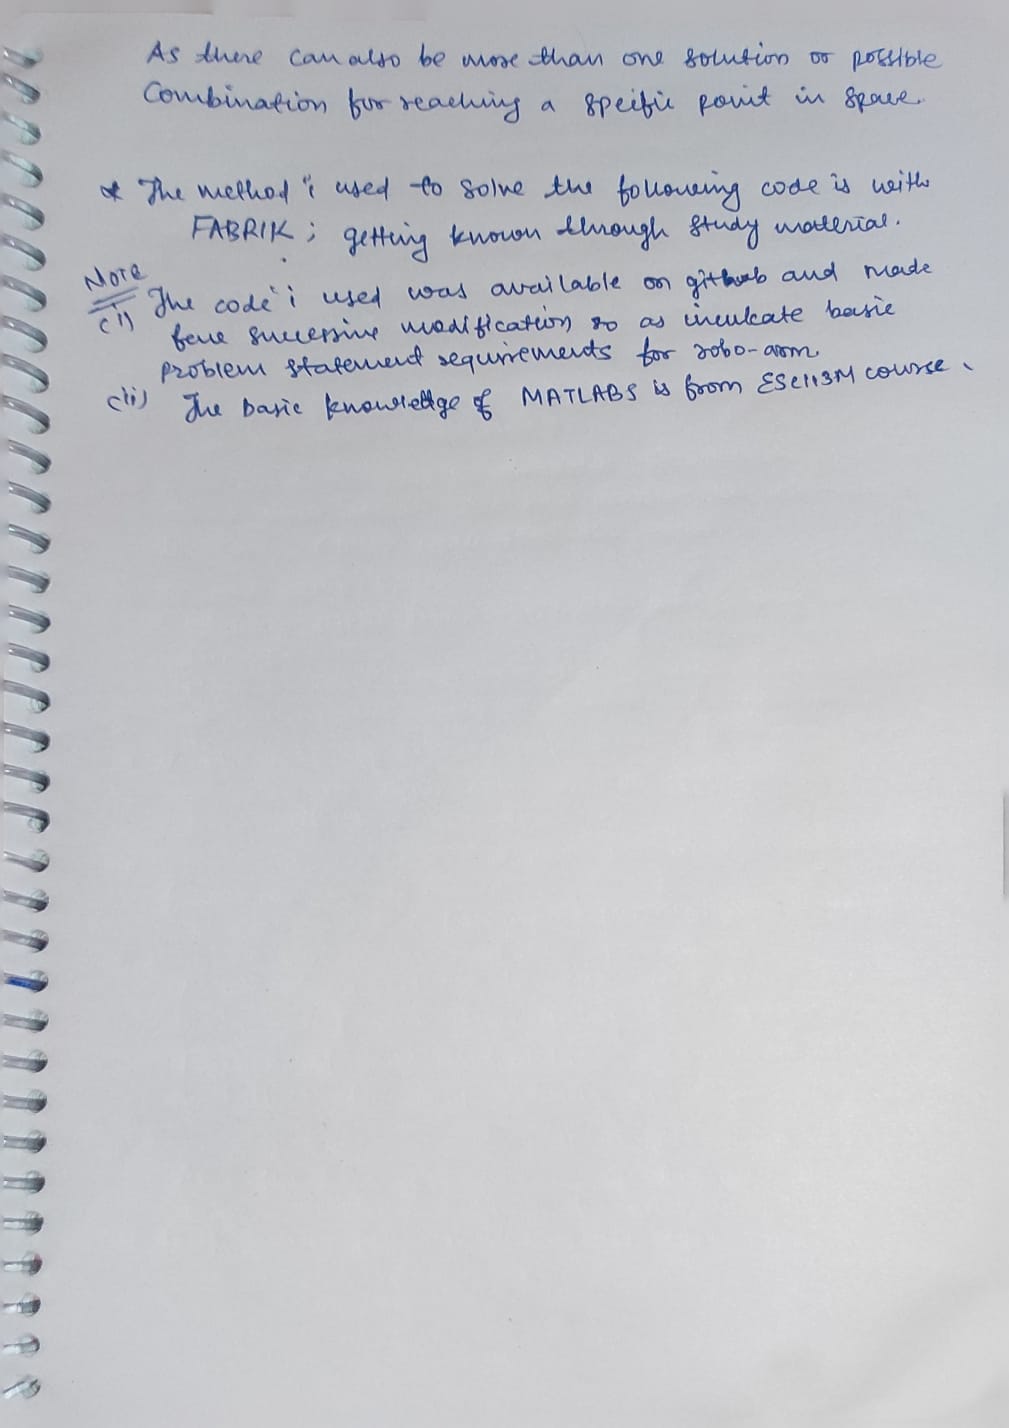 As there can also be more than one solution or possible
Combination for reaching a speific point in space.
* The method i used to solve the following code is with
FABRIK; getting known through study material.
Note
(i) The code i used was available on github and made
few successive modification so as inculcate basic
problem statement requirements for robo-arm.
(ii) The basic knowledge of MATLABS is from ESC113M course.